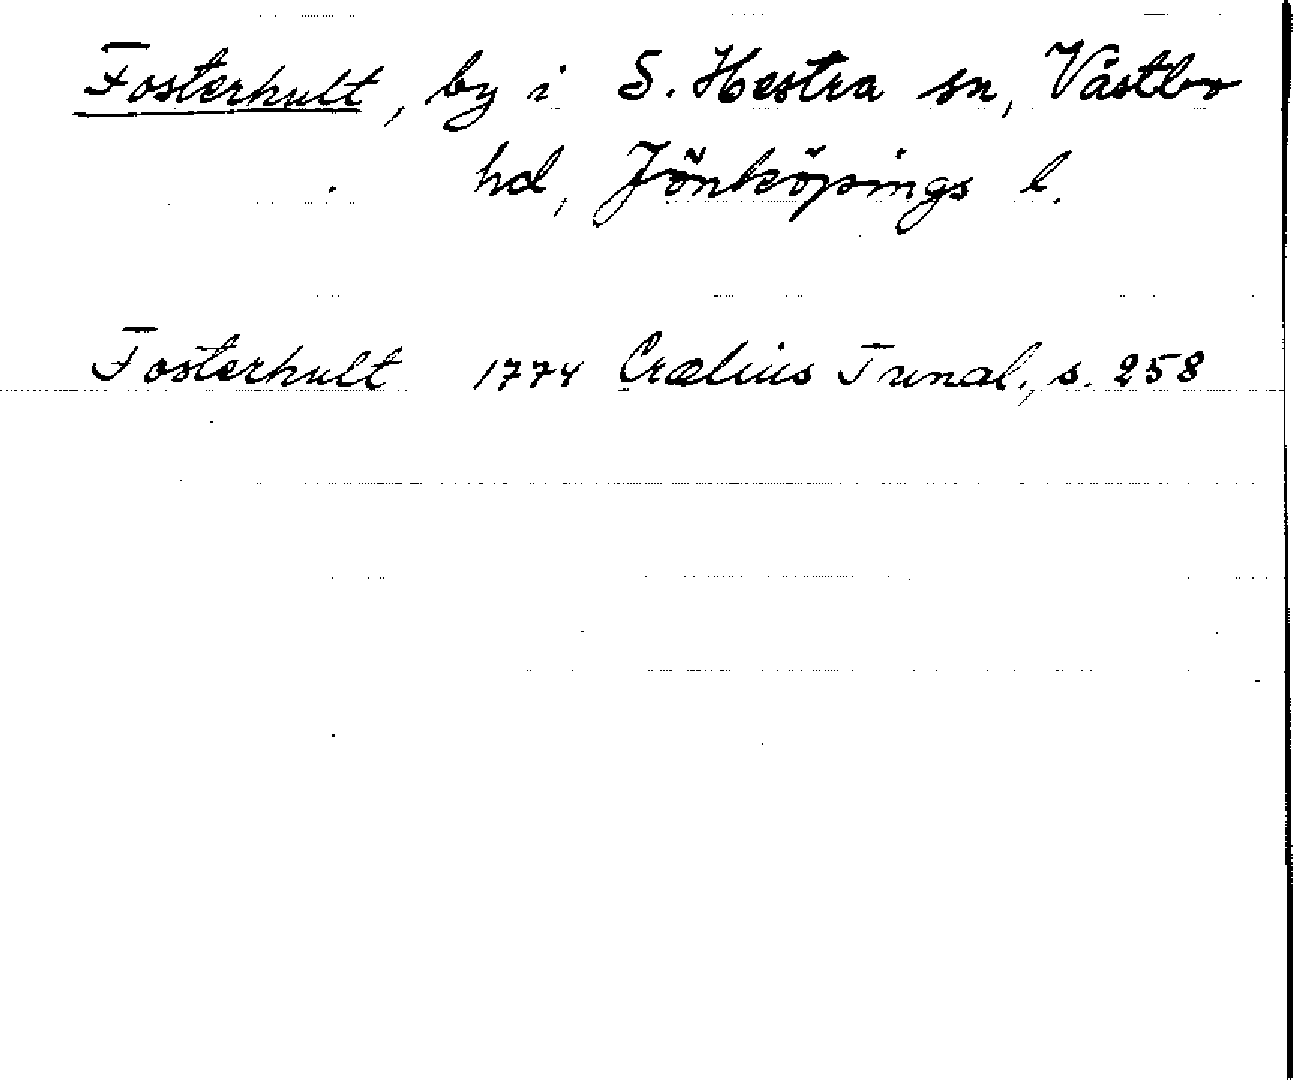 Fosterhult, by i S. Hestra sn, Västbo
hd, Jönköpings l.
Fosterhult 1774 Crælius Tunal., s. 258